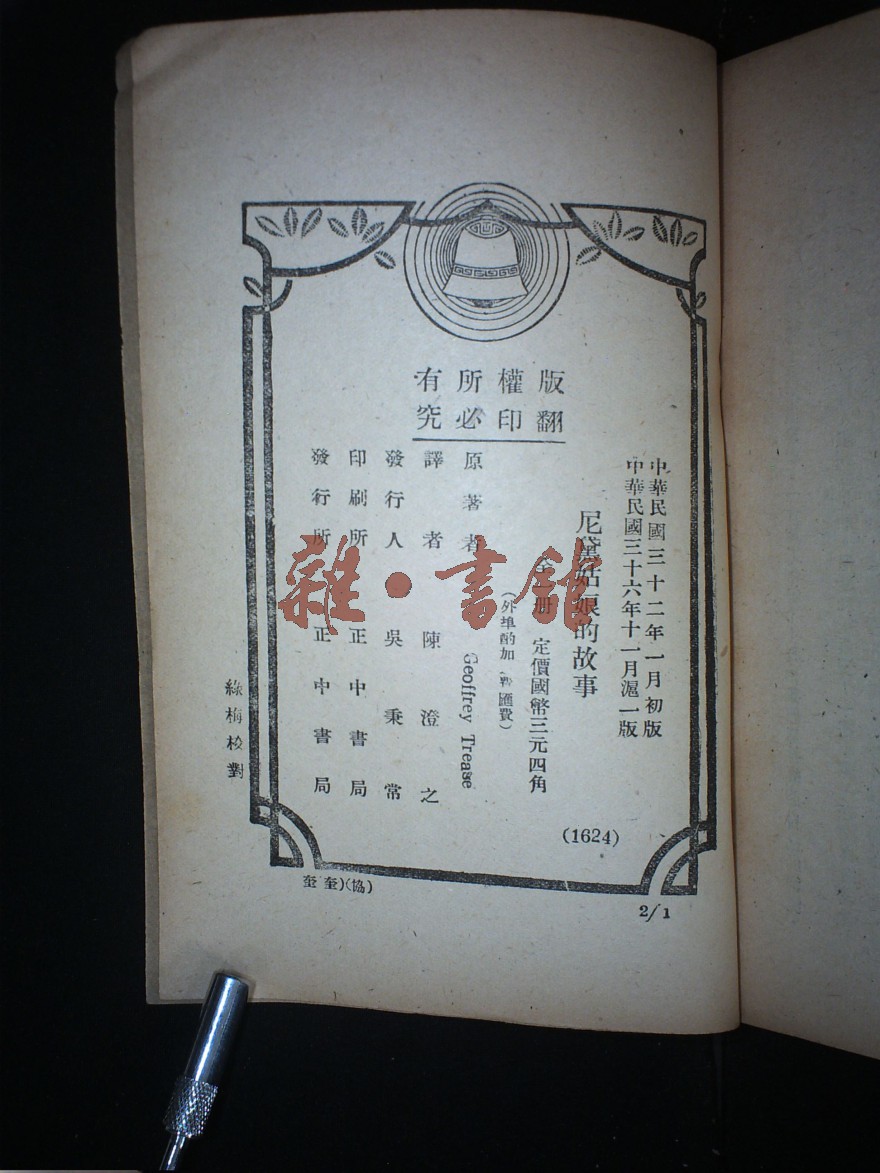 中華民國三十二年一月初版
中華民國三十六年十一月滬一版
尼黛姑娘的故事
全一册 定價國幣三元四角
(外埠酌加 匯費)
版權所有
翻印必究
原著者 Geoffrey Trease
譯者 陳澄之
發行人 吳秉常
印刷所 正中書局
發行所 正中書局
(1624)
綠梅校對
(協)
2/1
雜·書館